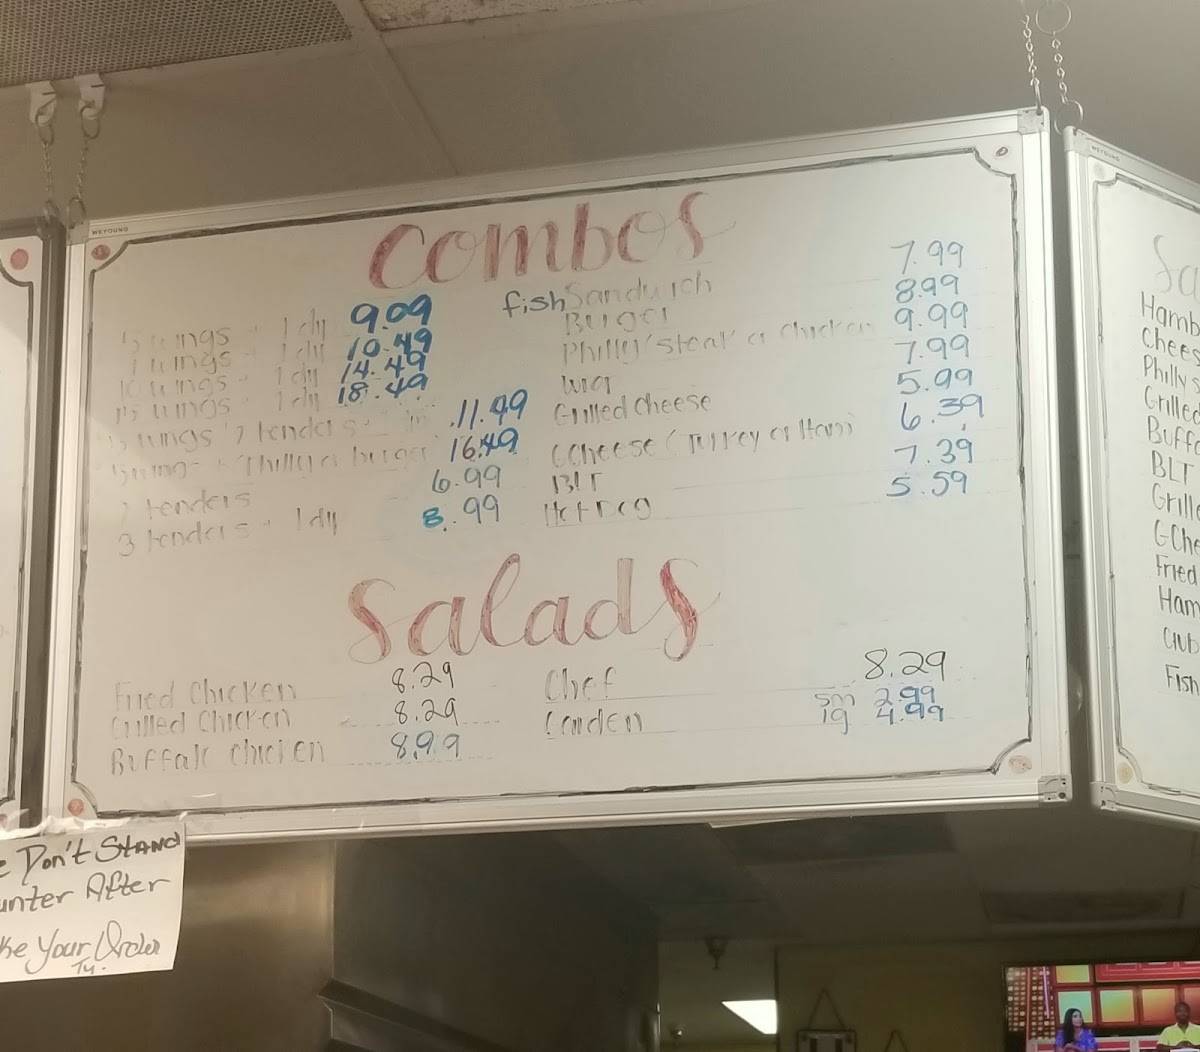 WEYOUNG
Combos
5 wings + 1 dy 9.09
wings + 1 dy 10.49
10 wings + 1 dy 14.49
15 wings 1 dy 18.49
5 wings 2 tenders 11.49
5 wings Philly or burger 16.49
2 tenders 6.99
3 tenders + 1 dy 8.99
fish Sandwich 7.99
Burger 8.99
Philly steak or chicken 9.99
7.99
Grilled cheese 5.99
GCheese (Turkey or Ham) 6.39
BLT 7.39
Hot Dog 5.59
Salads
Fried Chicken 8.29
Grilled Chicken 8.29
Buffalo Chicken 8.99
Chef 8.29
Garden sm 2.99
lg 4.99
WEYOUNG
Sa
Hamb
Chees
Philly S
Grilled
Buffa
BLT
Grille
G-Che
Fried
Ham
Club
Fish
e Don't Stand
unter After
ke Your Order
Ty.